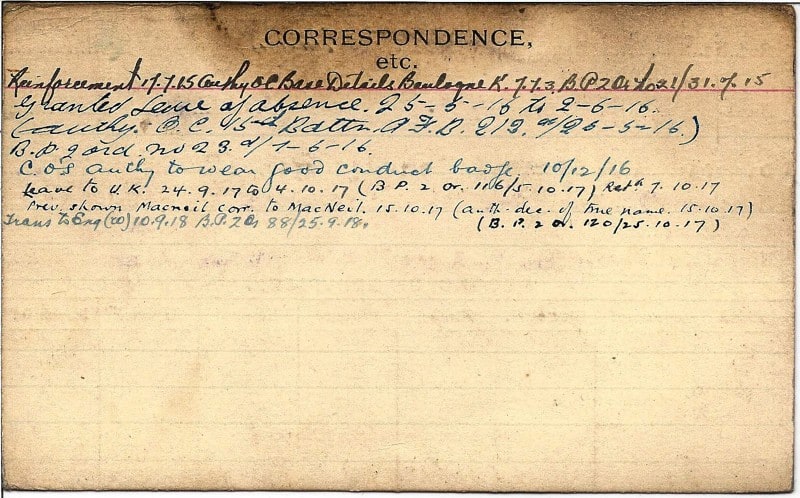 CORRESPONDENCE,
etc.
Reinforcement 17.7.15 Authy O C Base Details Boulogne K. 7.7.3, B.P 2 Or No 21/31.7.15
Granted Leave of absence. 25-5-16 to 2-6-16.
(authy. O.C. 15th Battn. A.F.B. 213. d/26-5-16.)
B.P 2 ord. no 23. d/1-6-16.
C.O's authy to wear good conduct badge. 10/12/16
Leave to U.K. 24.9.17 to 4.10.17 (B P. 2 Or. 116/5.10.17) Retd 7.10.17
Prev. shown Macneil cor. to MacNeil. 15.10.17 (auth. dec. of true name. 15.10.17)
(B. P. 2 Or. 120/25.10.17)
Trans to Eng 10.9.18 B.P. 2 Or 88/25.9.18.